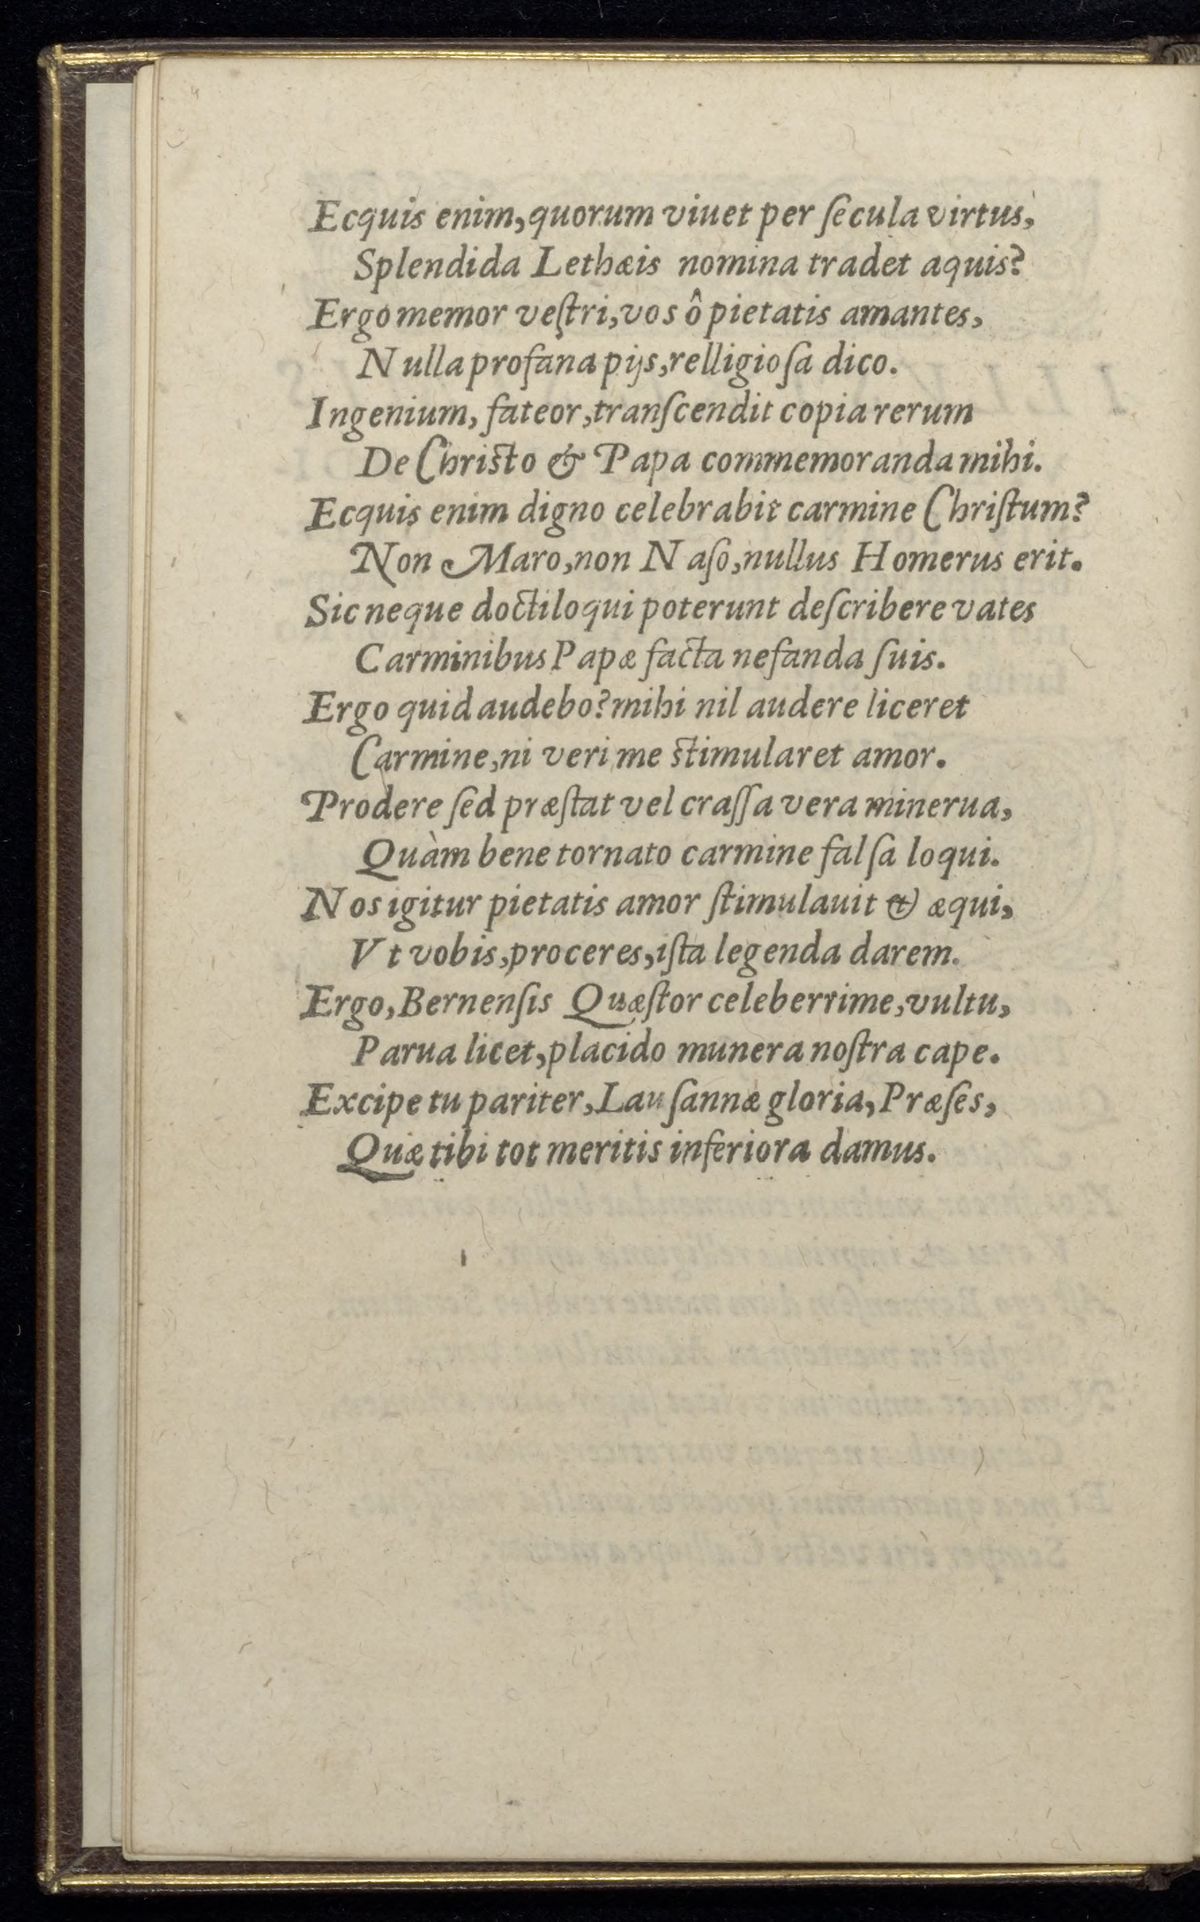 Ecquis enim, quorum viuet per ſecula virtus,
Splendida Lethæis nomina tradet aquis?
Ergo memor veſtri, vos ô pietatis amantes,
Nulla profana pijs, relligioſa dico.
Ingenium, fateor, tranſcendit copia rerum
De Christo & Papa commemoranda mihi.
Ecquis enim digno celebrabit carmine Chriſtum?
Non Maro, non Naſo, nullus Homerus erit.
Sic neque doctiloqui poterunt deſcribere vates
Carminibus Papæ facta nefanda ſuis.
Ergo quid audebo? mihi nil audere liceret
Carmine, ni veri me stimularet amor.
Prodere ſed præſtat vel craſſa vera minerua,
Quàm bene tornato carmine falſa loqui.
Nos igitur pietatis amor ſtimulauit & æqui,
Vt vobis, proceres, iſta legenda darem.
Ergo, Bernenſis Quæſtor celeberrime, vultu,
Parua licet, placido munera noſtra cape.
Excipe tu pariter, Lauſannæ gloria, Præſes,
Quæ tibi tot meritis inferiora damus.